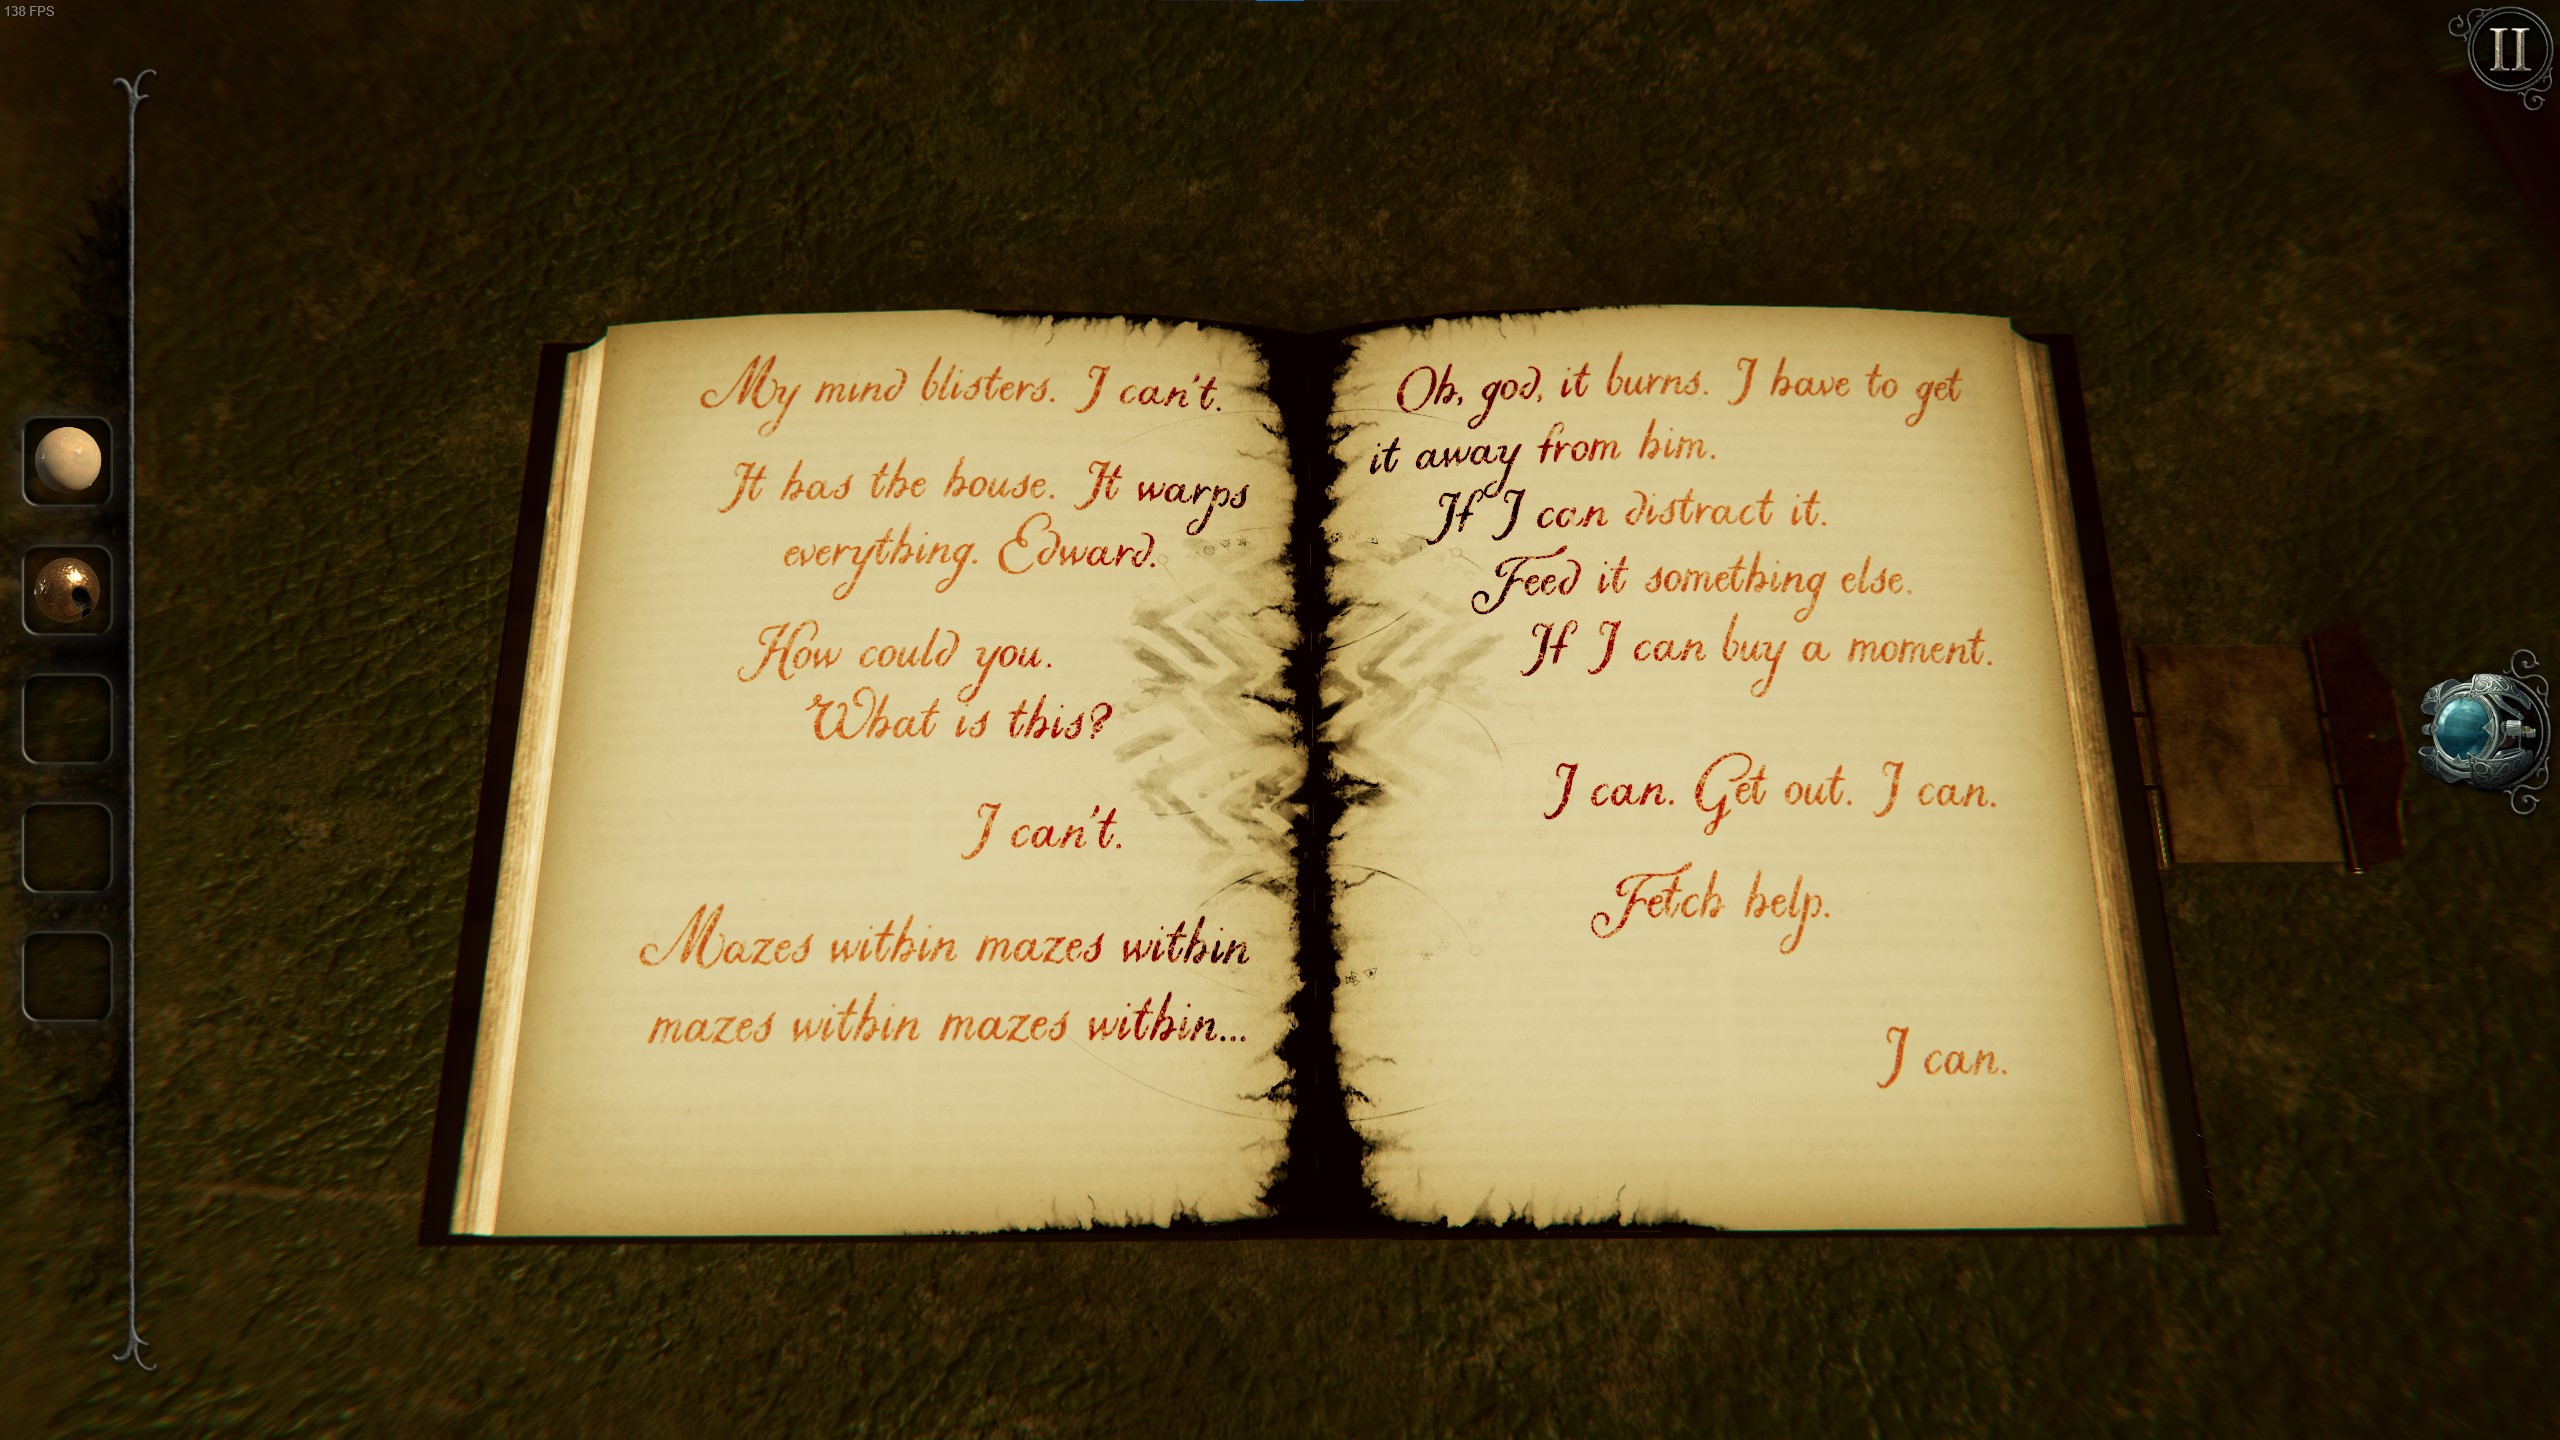 138 FPS
II
My mind blisters. I can't.
It has the house. It warps
everything. Edward.
How could you.
What is this?
I can't.
Mazes within mazes within
mazes within mazes within...
Oh, god, it burns. I have to get
it away from him.
If I can distract it.
Feed it something else.
If I can buy a moment.
I can. Get out. I can.
Fetch help.
I can.